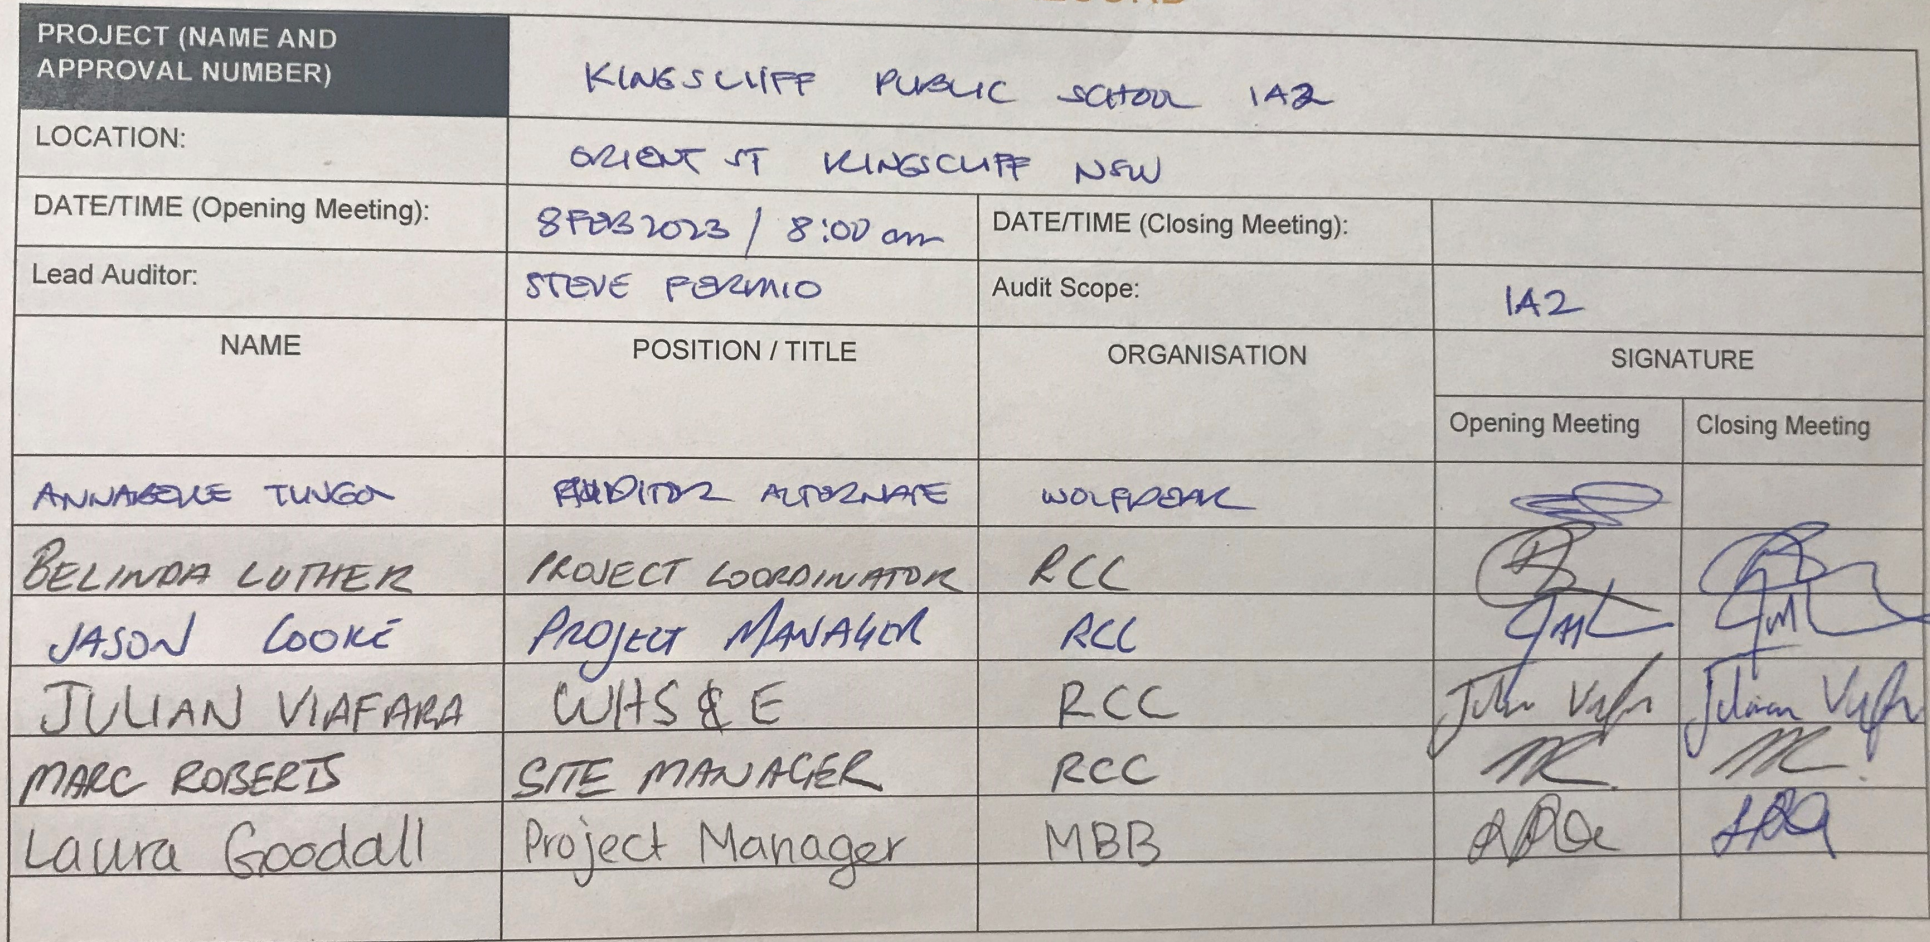 PROJECT (NAME AND
APPROVAL NUMBER)
KINGSCLIFF PUBLIC SCHOOL IA2
LOCATION:
ORIENT ST KINGSCLIFF NSW
DATE/TIME (Opening Meeting):
8 FEB 2023 / 8:00 am
DATE/TIME (Closing Meeting):
Lead Auditor:
STEVE FERMIO
Audit Scope:
IA2
NAME
POSITION / TITLE
ORGANISATION
SIGNATURE
Opening Meeting
Closing Meeting
ANNABELLE AUDITOR ALTERNATE WOLFPEAK
BELINDA LUTHER PROJECT COORDINATOR RCC
JASON COOKE PROJECT MANAGER RCC
JULIAN VIAFARA WHS & E RCC
MARC ROBERTS SITE MANAGER RCC
Laura Goodall Project Manager MBB